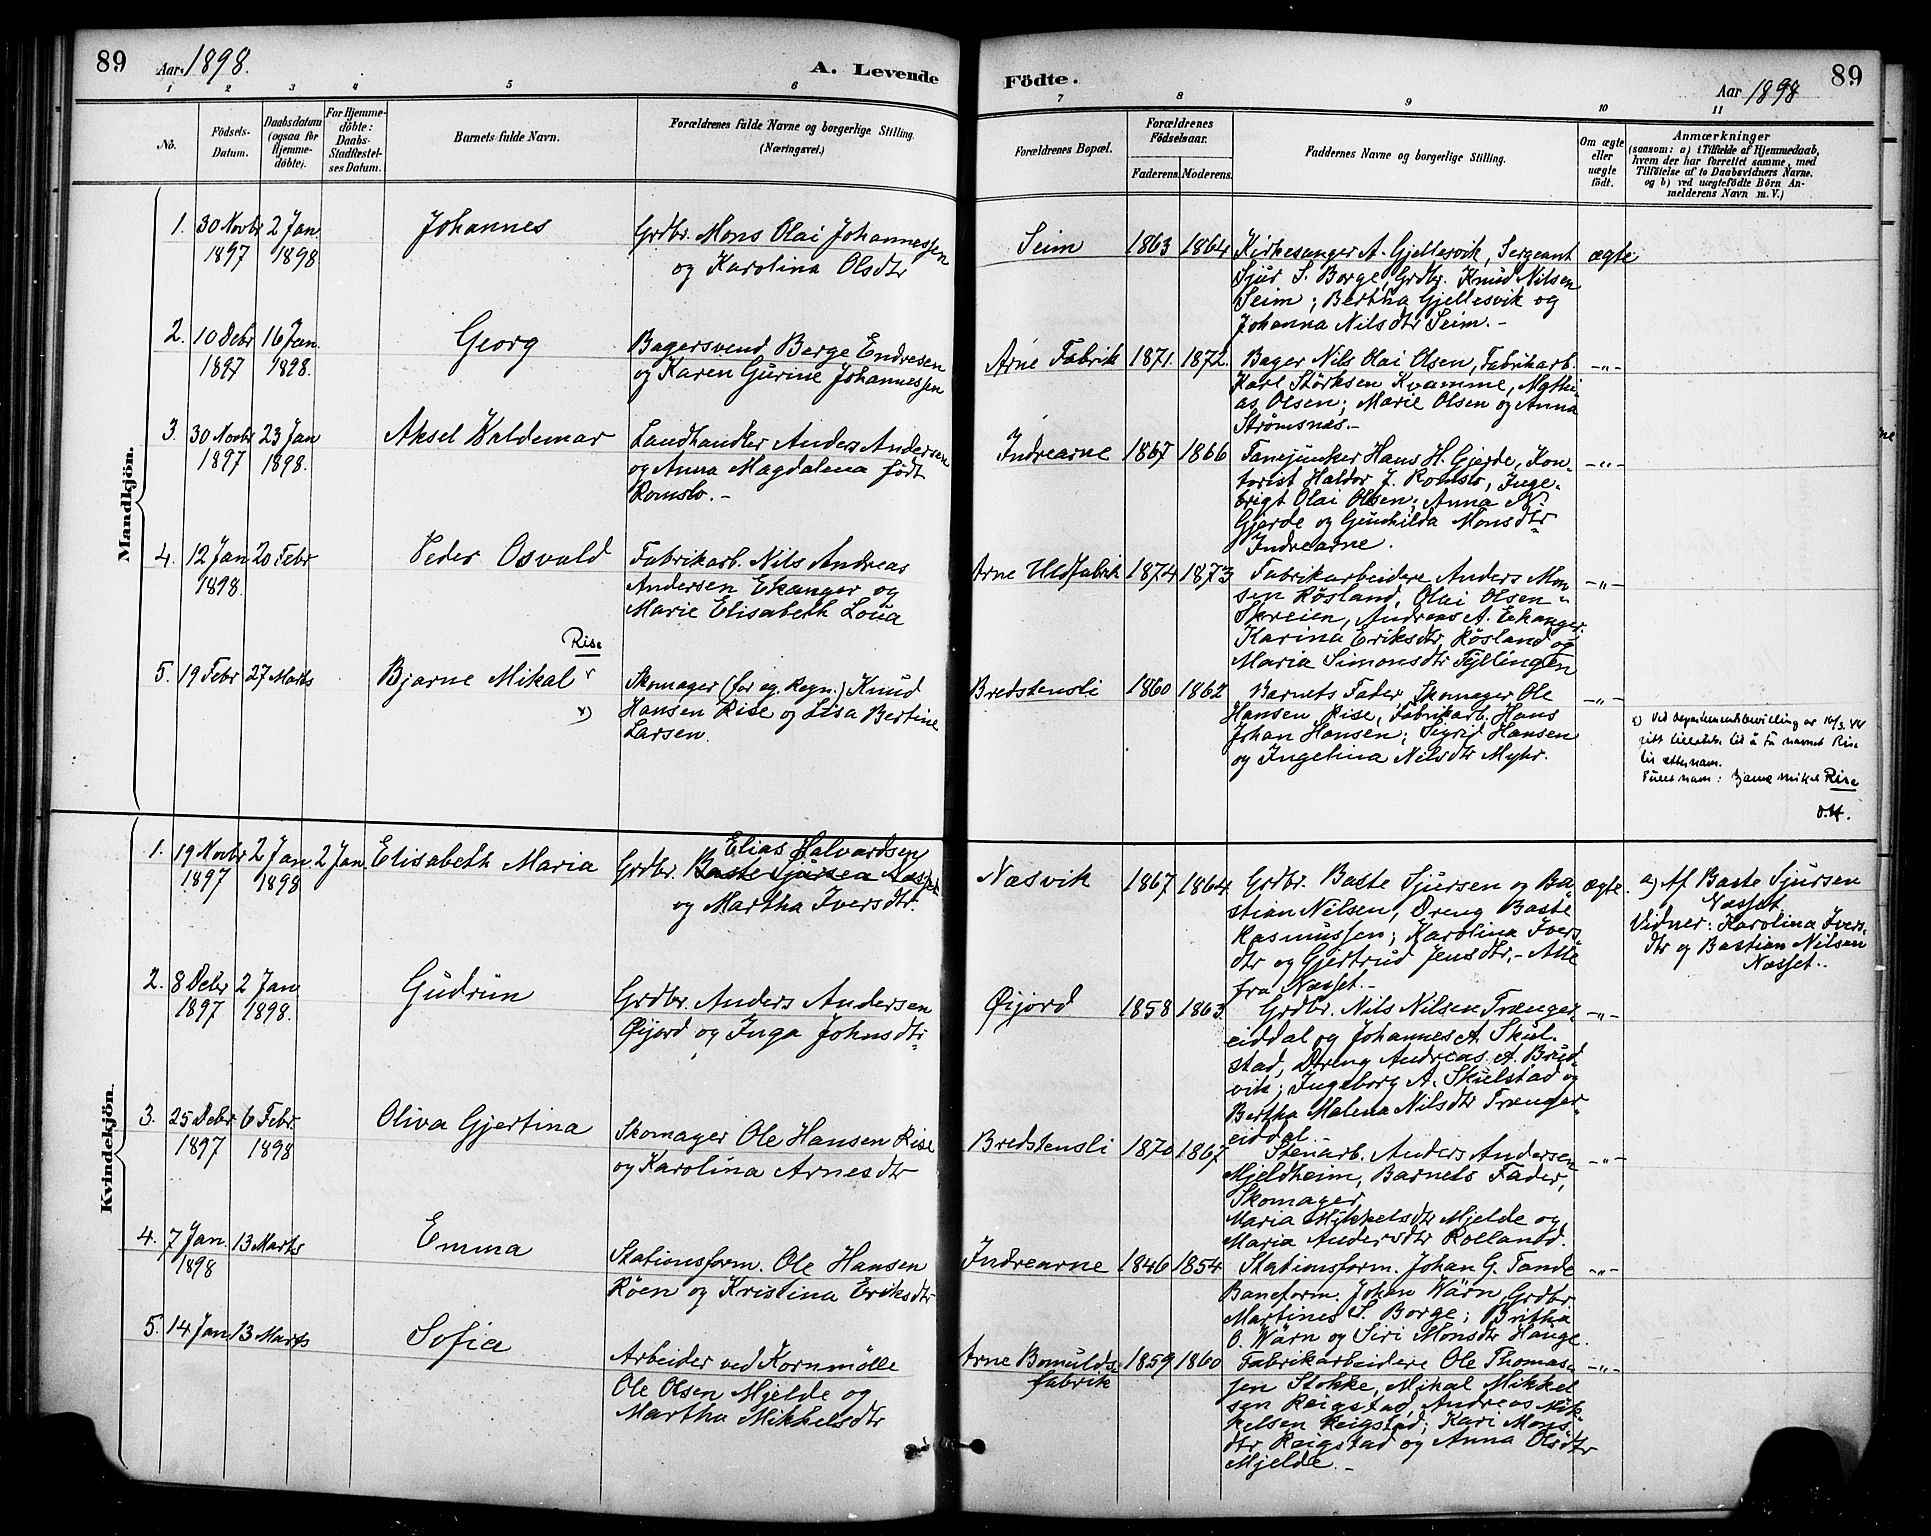 89 Aar 1898. A. Levende
1 2 3 4 5 6
No.
Födsels-
Datum.
Daabsdatum
(ogsaa for
Hjemme-
döbte).
For Hjemme-
döbte:
Daabs-
Stadfæstel-
ses Datum.
Barnets fulde Navn.
Forældrenes fulde Navne og borgerlige Stilling.
(Næringsvei.)
Mandkjön.
1. 30 Novbr 2 Jan Johannes Grdbr. Mons Olai Johannessen
1897 1898 og Karolina Olsdtr
2. 10 Debr 16 Jan. Georg Bagersvend Berge Endresen
1897 1898. og Karen Gurine Johannessen
3. 30 Novbr 23 Jan Aksel Valdemar Landhandler Anders Andersen
1897 1898. og Anna Magdalena født
Romslo. -
4. 12 Jan 20 Febr Peder Osvald Fabrikarb. Nils Andreas
1898. Andersen Ekanger og
Marie Elisabeth Loua
Rise
5. 19 Febr 27 Marts Bjarne Mikal Skomager (for eg. Regn.) Knud
x) Hansen Rise og Lisa Bertine
Larsen.
Kvindekjön.
Elias Halvardsen
1. 19 Novbr 2 Jan. 2 Jan. Elisabeth Maria Grdbr. Baste Sjursen Næsset
1897 1898 og Martha Iversdtr.
2. 8 Debr 2 Jan Gudrun Grdbr. Anders Andersen
1897 1898. Øijord og Inga Johnsdtr
3. 25 Debr 6 Febr. Oliva Gjertina Skomager Ole Hansen Rise
1897 1898 og Karolina Arnesdtr
4. 7 Jan. 13 Marts Emma Stationsform. Ole Hansen
1898 Röen og Kristina Eriksdtr
5. 14 Jan 13 Marts Sofia Arbeider ved Kornmölle
Ole Olsen Mjelde og
Martha Mikkelsdtr
Födte. Aar 1898 89
7 8 9 10 11
Forældrenes Bopæl.
Forældrenes
Födselsaar.
Faderens. Moderens.
Faddernes Navne og borgerlige Stilling.
Om ægte
eller
uægte
födt.
Anmærkninger
(saasom: a) i Tilfælde af Hjemmedaab,
hvem der har forrettet samme, med
Tilföielse af to Daabsvidners Navne.
og b) ved uægtefödte Börn An-
melderens Navn m. V.)
Seim 1863 1864 Kirkesanger A. Gjellesvik, Sergeant ægte
Sjur S. Borge, Grdbr. Knud Nilsen
Seim; Bertha Gjellesvik og
Johanna Nilsdtr Seim. -
Arne Fabrik 1871. 1872. Bager Nils Olai Olsen, Fabrikarb. -"-
Karl Störksen Kvamme, Mathi-
as Olsen; Marie Olsen og Anna
Strömsnæs. -
Indrearne 1867 1866 Fanejunker Hans H. Gjerde, Kon- -"-
torist Haldor J. Romslo, Inge-
brigt Olai Olsen; Anna N.
Gjerde og Gunhilda Monsdtr
Indrearne.
Arne Uldfabrik 1874 1873 Fabrikarbeidere Anders Mon- -"-
sen Røsland, Olai Olsen
Skreien, Andreas A. Ekanger.
Karina Eriksdtr Røsland og
Maria Simonsdtr Tyllingen
Bredstensli 1860 1862 Barnets Fader, Skomager Ole -"-
Hansen Rise, Fabrikarb. Hans
Johan Hansen; Sigrid Hansen
og Ingelina Nilsdtr Myhr.
x) Ved departementsbevilling av 16/3. 44
gitt tillatelse til å ta navnet Rise
til etternavn.
Fullt navn: Bjarne Mikal Rise
O.H.
Næsvik 1867 1864. Grdbr. Baste Sjursen og Ba- ægte. a) Af Baste Sjursen
stian Nilsen, Dreng Baste Næsset
Rasmussen; Karolina Ivers- Vidner: Karolina Ivers-
dtr og Gjertrud Jensdtr, - Alle dtr og Bastian Nilsen
fra Næsset. - Næsset.
Øijord 1858 1863. Grdbr. Nils Nilsen Trænger- -"-
eiddal og Johannes A. Skul-
stad, Dreng Andreas A. Brud-
vik; Ingeborg A. Skulstad og
Bertha Malena Nilsdtr Trænger-
eiddal. -
Bredstensli 1870 1867 Stenarb. Anders Andersen -"-
Mjeldheim, Barnets Fader,
Skomager
Maria Mikkelsdtr Mjelde og
Maria Andersdtr Rolland.
Indrearne 1846 1854 Stationsform. Johan G. Tande -"-
Baneform. Johan Wärn, Grdbr.
Martines S. Borge; Britha
O. Wärn og Siri Monsdtr Hauge.
Arne Bomulds- 1859 1860 Fabrikarbeidere Ole Thomas- -"-
fabrik sen Stokke, Mikal Mikkel
sen Reigstad, Andreas Mik-
kelsen Reigstad; Kari Mons-
dtr Reigstad og Anna Olsdtr
Mjelde. -